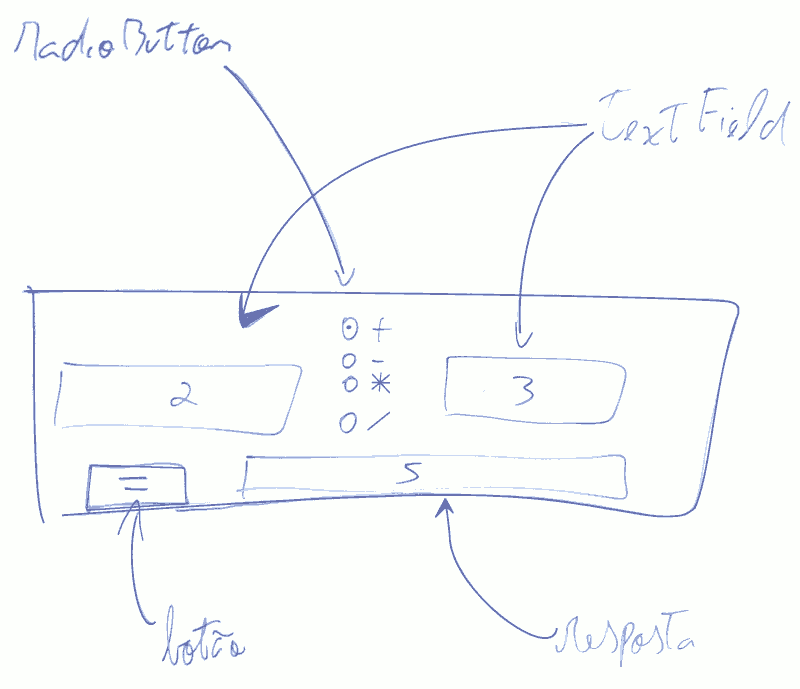 RadioButton
TextField
+
-
2
*
3
/
=
5
botão
resposta